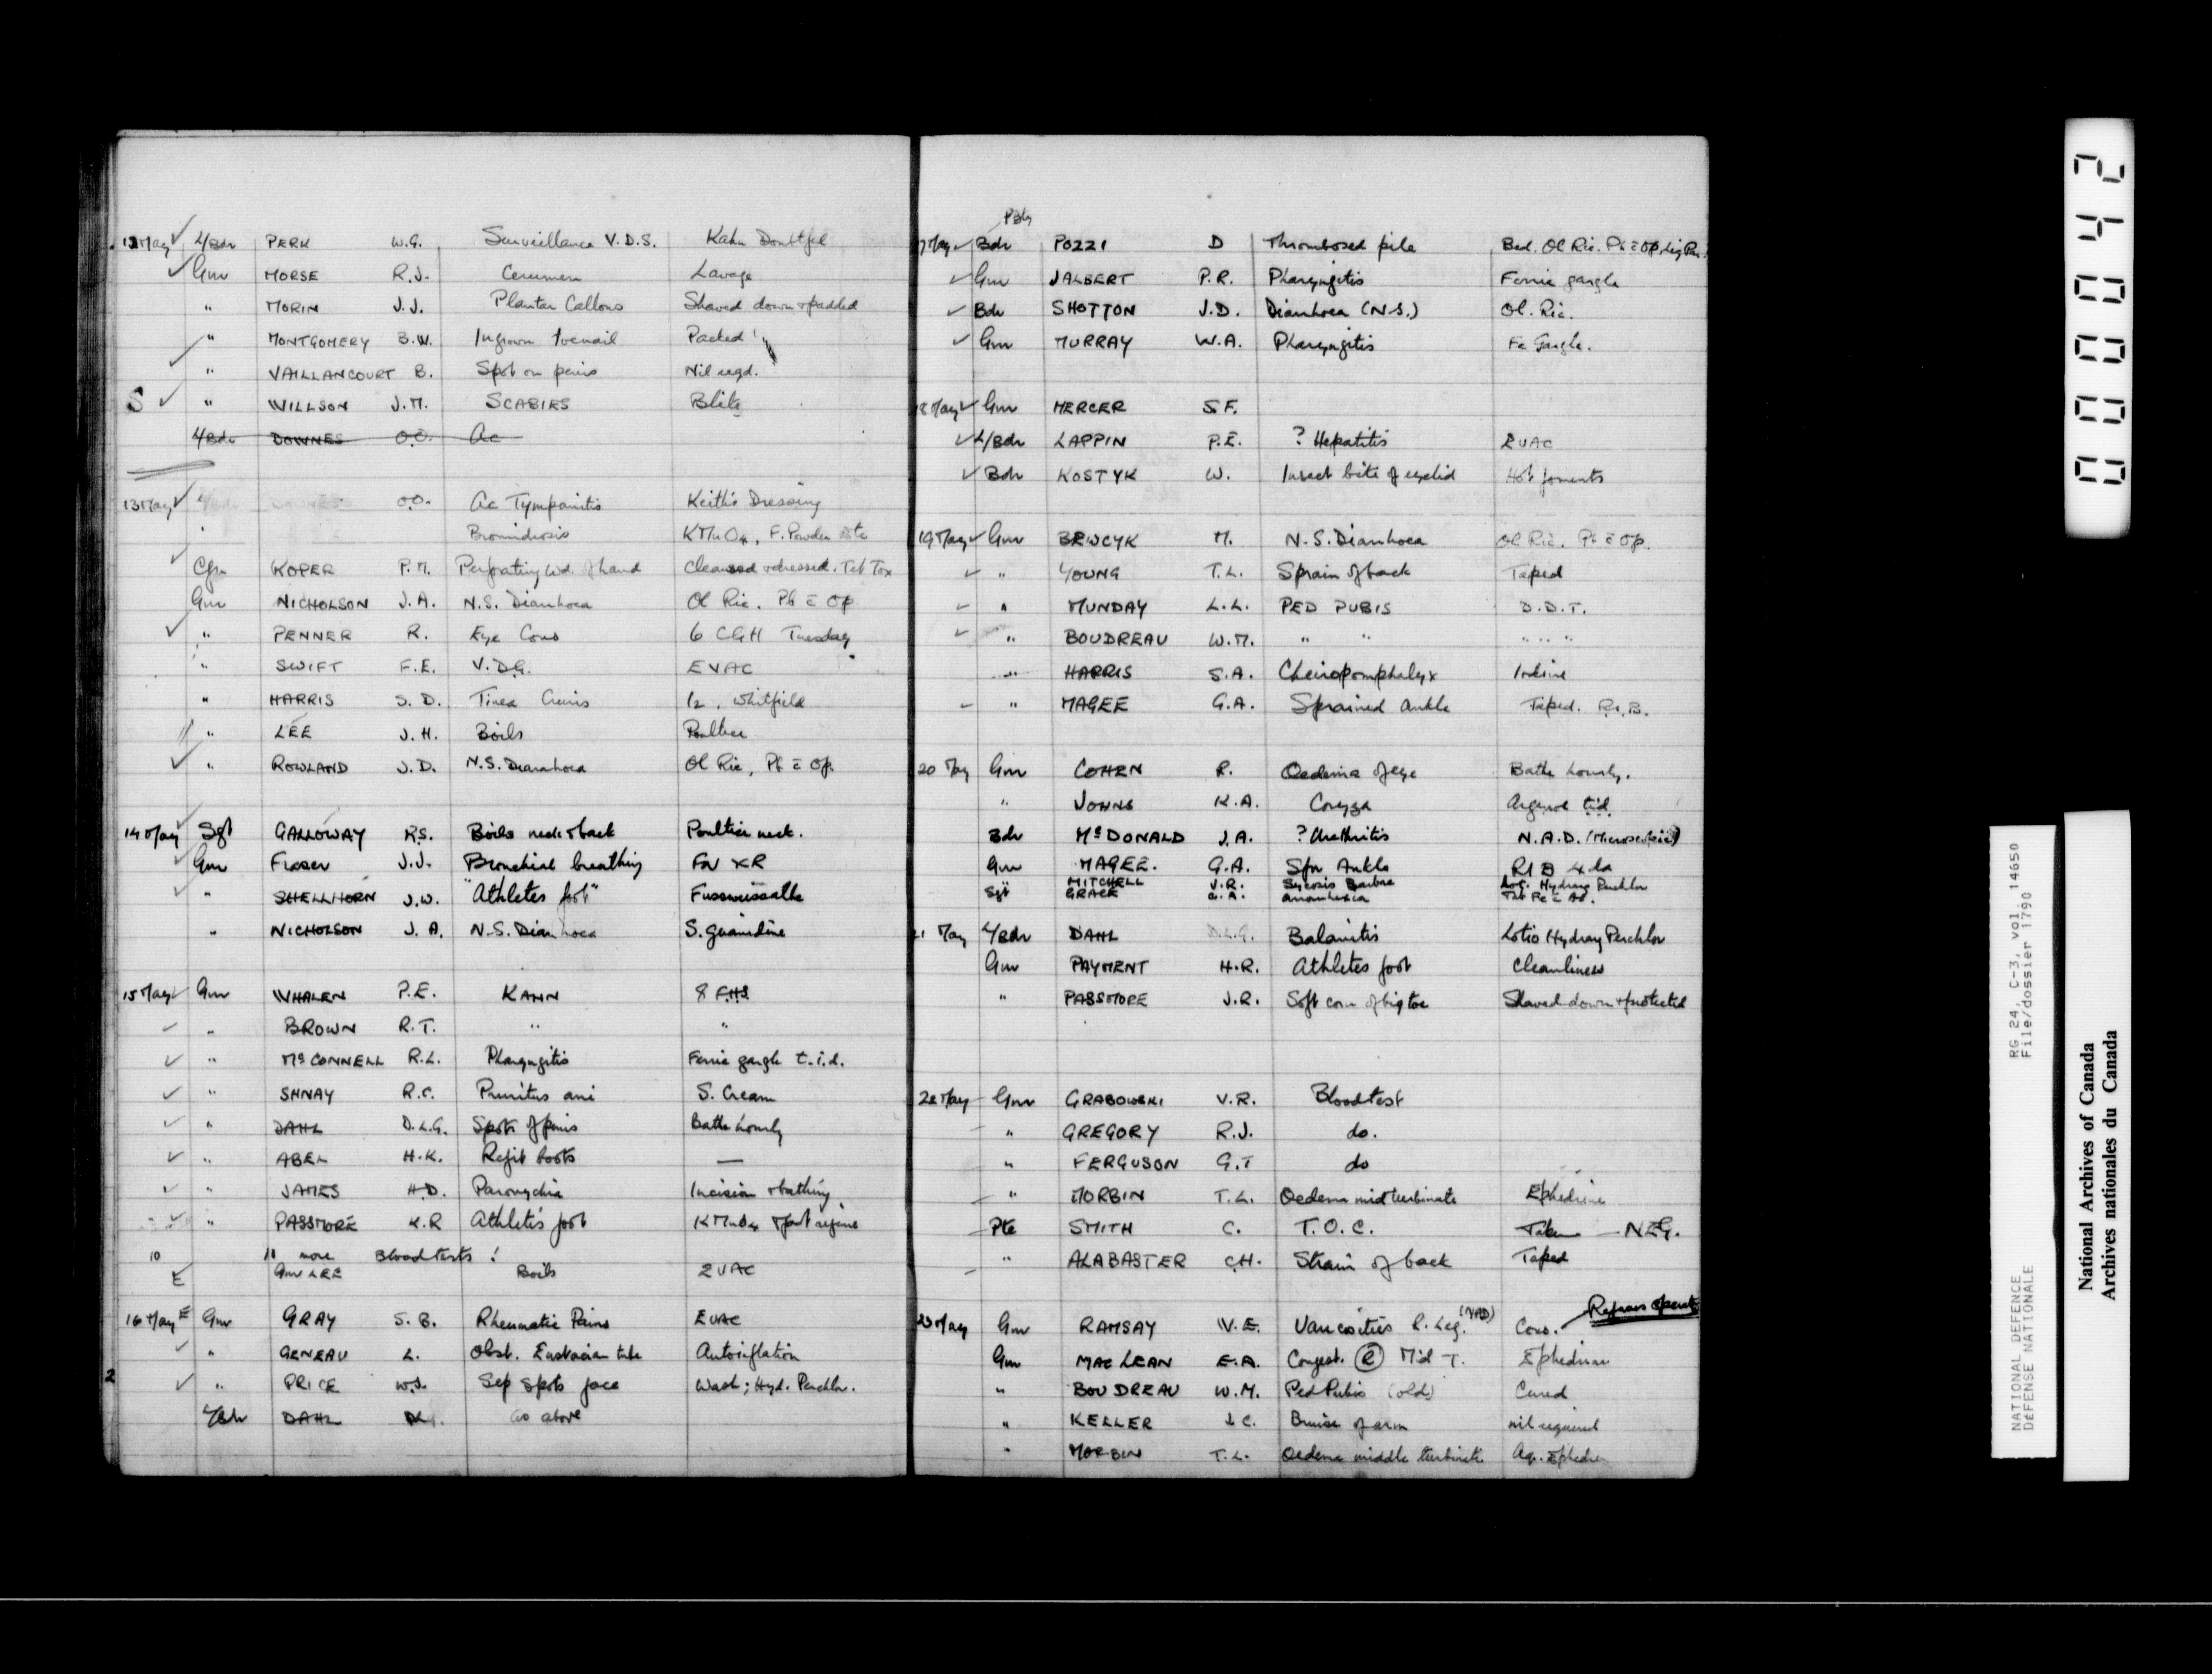 12 May L/Bdr PERK W.G. Surveillance V.D.S. Kahn Doubtful
Gnr MORSE R.J. Cerumen Lavage
" MORIN J.J. Plantar Callous Shaved down & padded
" MONTGOMERY B.W. Ingrown toenail Packed
" VAILLANCOURT B. Spot on penis Nil reqd.
S " WILLSON J.M. SCABIES Blitz
L/Bdr DOWNES O.O. Ac
13 May O.O. Ac Tympanitis Keith's Dressing
Bromidrosis KMnO4, F. Powder etc
Cfn KOPER P.M. Perforating wd. of hand Cleansed & dressed. Tet Tox
Gnr NICHOLSON J.A. N.S. Diarrhoea Ol Ric. Pb c Op
" PENNER R. Eye Cons 6 CGH Tuesday
" SWIFT F.E. V.D.G. EVAC
" HARRIS S.D. Tinea Cruris I2, Whitfield
" LEE J.H. Boils Poultice
" ROWLAND J.D. N.S. Diarrhoea Ol Ric, Pb c Op.
14 May Sgt GALLOWAY R.S. Boils neck & back Poultice neck.
Gnr Fraser J.J. Bronchial breathing For XR
" SHELLHORN J.W. "Athletes foot"
" NICHOLSON J.A. N.S. Diarrhoea S. guanidine
15 May Gnr WHALEN P.E. KAHN 8 F.H.S.
" BROWN R.T. " "
" McCONNELL R.L. Pharyngitis Ferric gargle t.i.d.
" SHNAY R.C. Pruritus ani S. Cream
" DAHL D.L.G. Spots of penis Bathe hourly
" ABEL H.K. Refit boots —
" JAMES H.D. Paronychia Incision & bathing
" PASSMORE K.R Athlete's foot KMnO4 & foot regime
10 10 more Blood tests!
E Gnr LEE Boils EVAC
16 May E Gnr GRAY S.B. Rheumatic Pains EVAC
" GENEAU L. Obst. Eustacian tube Autoinflation
2 " PRICE W.J. Sep spots face Wash; Hyd. Perchlor.
L/Bdr DAHL D.L.G. as above
17 May Bdr POZZI D Thrombosed pile Bed. Ol Ric. Pb c Op
Gnr JALBERT P.R. Pharyngitis Ferric gargle
Bdr SHOTTON J.D. Diarrhoea (N.S.) Ol. Ric.
Gnr MURRAY W.A. Pharyngitis Fe Gargle.
18 May Gnr MERCER S.F.
L/Bdr LAPPIN P.E. ? Hepatitis EVAC
Bdr KOSTYK W. Insect bite of eyelid Hot foments
19 May Gnr BEWCYK M. N.S. Diarrhoea Ol Ric. Pb c Op.
" YOUNG T.L. Sprain of back Taped
" MUNDAY L.L. PED PUBIS D.D.T.
" BOUDREAU W.M. " " " " "
" HARRIS S.A. Cheiropompholyx Iodine
" MAGEE G.A. Sprained Ankle Taped. R.I.B.
20 May Gnr COHEN R. Oedema of eye Bathe hourly.
" JOHNS K.A. Coryza Argyrol t.i.d.
Bdr McDONALD J.A. ? Urethritis N.A.D. (Microscopic)
Gnr MAGEE. G.A. Spr Ankle RIB 4 da
MITCHELL J.R. Sycosis Barbae Lot. Hydrarg Perchlor
Sgt GRACE
21 May L/Bdr DAHL D.L.G. Balanitis Lotio Hydrarg Perchlor
Gnr PAYMENT H.R. Athletes foot Cleanliness
" PASSMORE J.R. Soft corn of big toe Shaved down & protected
22 May Gnr GRABOWSKI V.R. Blood test
" GREGORY R.J. do.
" FERGUSON G.T do
" MORBIN T.L. Oedema mid turbinate Ephedrine
Pte SMITH C. T.O.C. Taken — NEG.
" ALABASTER C.H. Strain of back Taped
23 May Gnr RAMSAY W.E. Varicosities R. Leg. (NAD) Cons. Refuses operation
Gnr MACLEAN E.A. Congest. R Mid T. Ephedrine
" BOUDREAU W.M. Ped Pubis (old) Cured
" KELLER J.C. Bruise of arm nil required
" MORBIN T.L. Oedema middle turbinate Aq. Ephedrine
000042
RG 24, C-3, vol. 14650
File/dossier 1790
NATIONAL DEFENCE
DÉFENSE NATIONALE
National Archives of Canada
Archives nationales du Canada